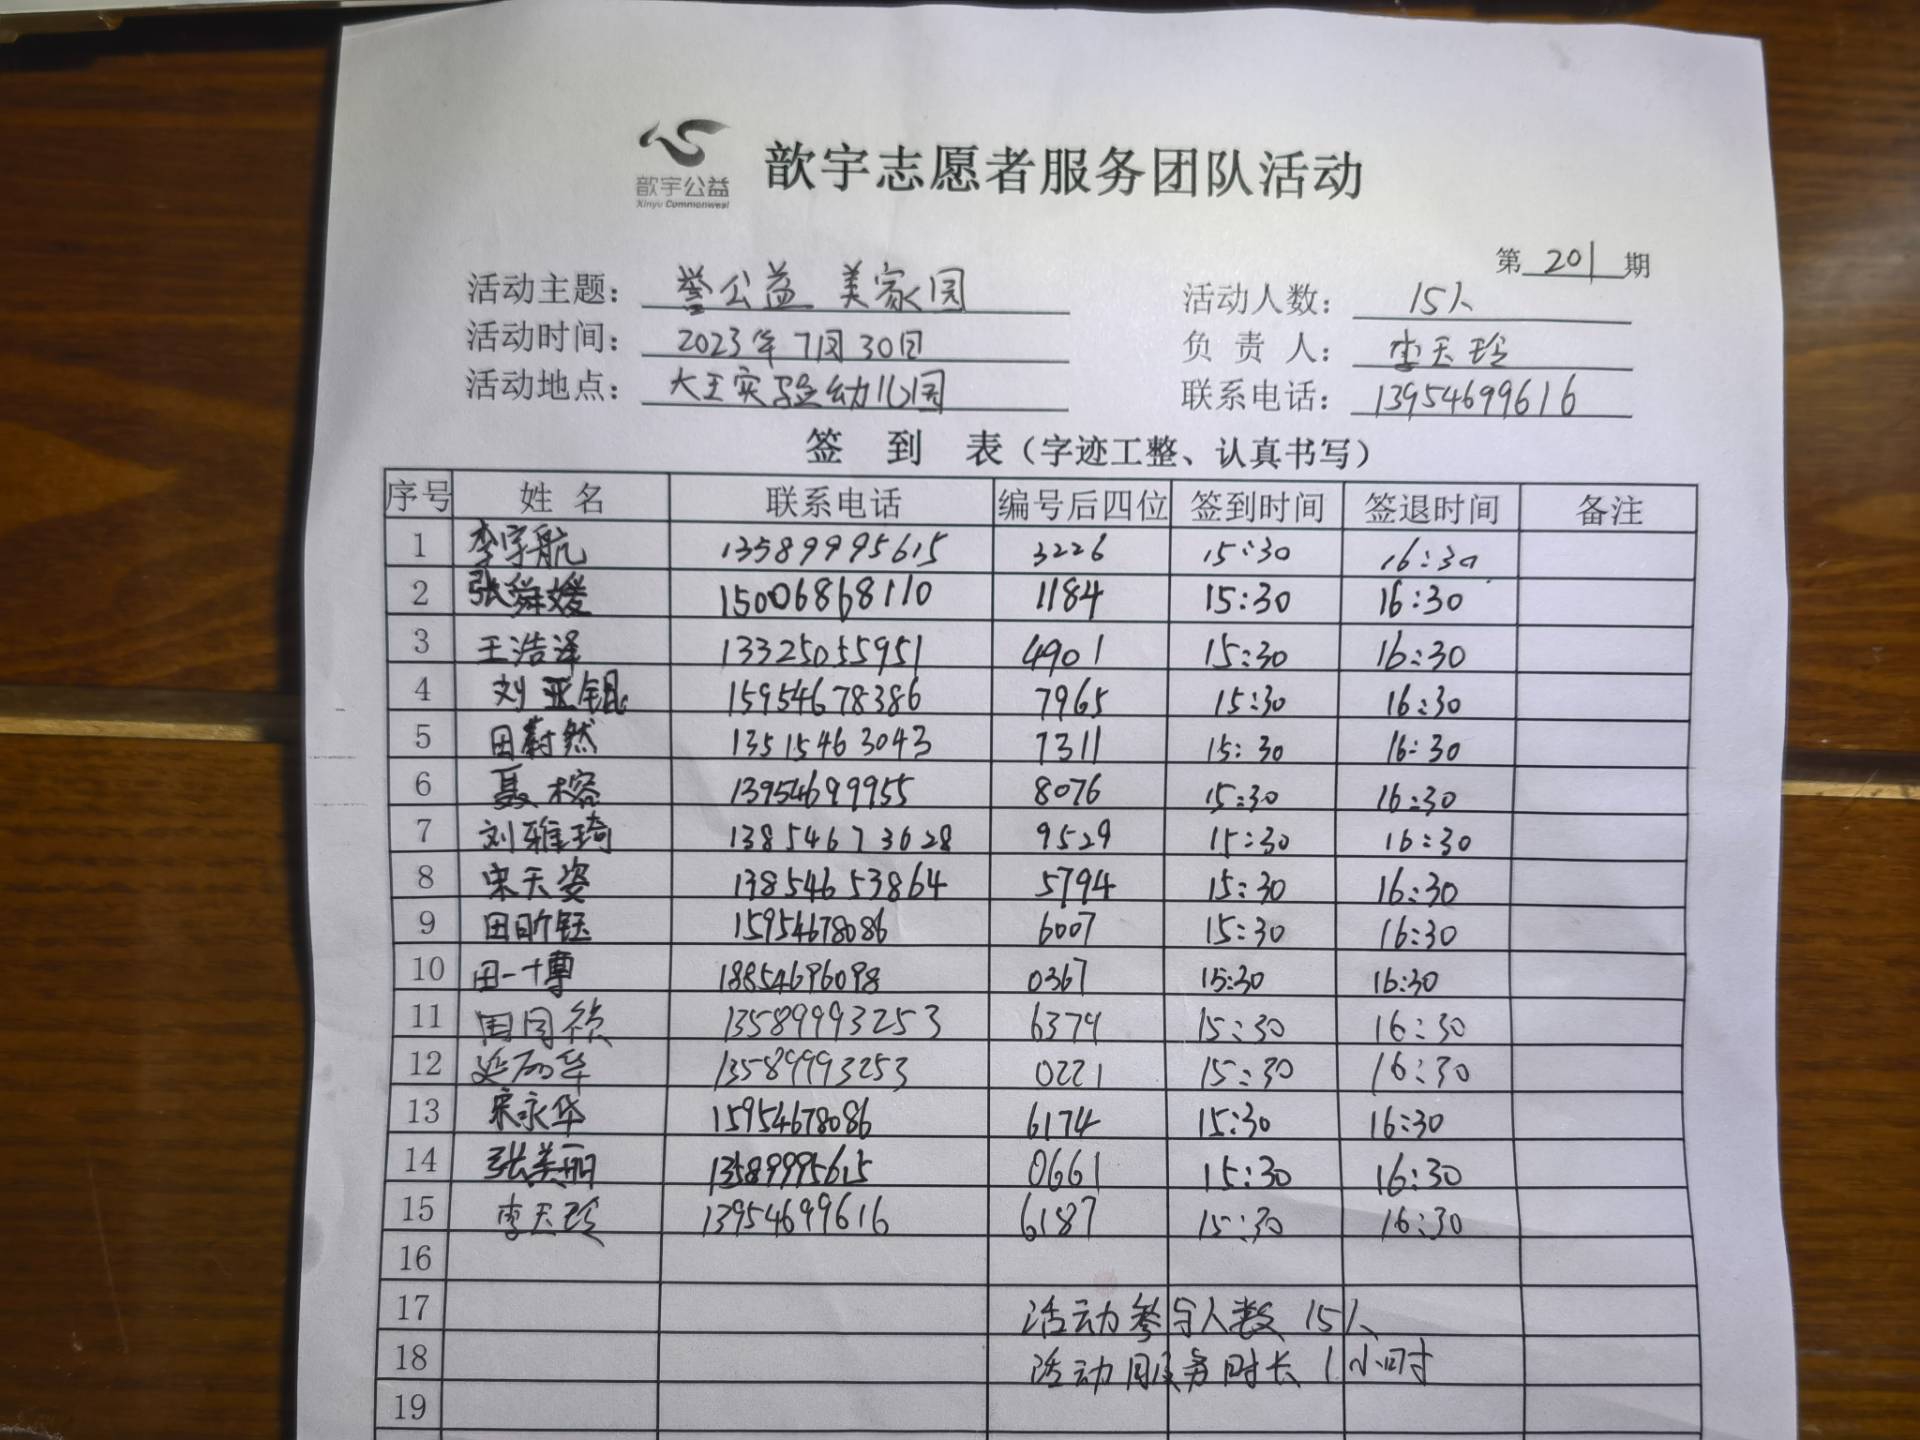 歆宇公益
Xinyu Commonweal
歆宇志愿者服务团队活动
第 201 期
活动主题： 誉公益 美家园 活动人数： 15人
活动时间： 2023年7月30日 负责人： 李天玲
活动地点： 大王实验幼儿园 联系电话： 13954699616
签到表（字迹工整、认真书写）
序号 姓名 联系电话 编号后四位 签到时间 签退时间 备注
1 李宇航 13589995615 3226 15:30 16:30
2 张舜媛 15006868110 1184 15:30 16:30
3 王浩泽 13325055951 4901 15:30 16:30
4 刘亚锟 15954678386 7965 15:30 16:30
5 田蔚然 13515463043 7311 15:30 16:30
6 聂榕 13954699955 8076 15:30 16:30
7 刘雅琦 13854673628 9529 15:30 16:30
8 宋天姿 13854653864 5794 15:30 16:30
9 田昕钰 15954678086 6007 15:30 16:30
10 田一博 18854696098 0367 15:30 16:30
11 周同 13589993253 6379 15:30 16:30
12 延丽华 13589993253 0221 15:30 16:30
13 宋永华 15954678086 6174 15:30 16:30
14 张美丽 13589995615 0661 15:30 16:30
15 李天玲 13954699616 6187 15:30 16:30
16
17 活动参与人数 15人
18 活动服务时长 1小时
19